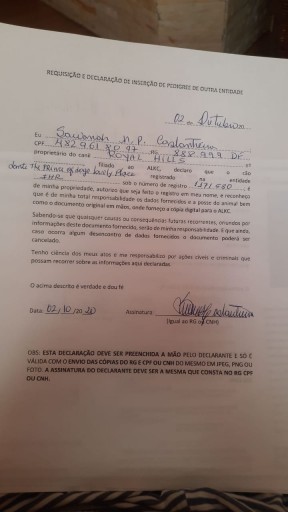 REQUISIÇÃO E DECLARAÇÃO DE INSERÇÃO DE PEDIGREE DE OUTRA ENTIDADE
02 de Outubro
Eu Sawanah N.P. Castanheira
CPF RG 888.999 DF
proprietário do canil ROYAL HILLS nº
filiado ao ALKC, declaro que o cão
dante The Prince of Dogs Lovely Place registrado na entidade
sob o número de registro 1371580. E
de minha propriedade, autorizo que seja feito o registro em meu nome, e reconheço
que é de minha total responsabilidade os dados fornecidos e a posse do animal bem
como o documento original em mãos, sendo forneço a cópia digital para o ALKC.
Sabendo-se que quaisquer custos ou consequências futuras recorrentes, oriundas por
informações deste documento fornecido, serão de minha responsabilidade. E que ainda,
caso ocorra algum desencontro de dados fornecidos o documento poderá ser
cancelado.
Tenho ciência dos meus atos e me responsabilizo por ações cíveis e criminais que
possam recorrer sobre as informações aqui declaradas.
O acima descrito é verdade e dou fé
Data: 02/10/2020 Assinatura
(Igual ao RG ou CNH)
OBS: ESTA DECLARAÇÃO DEVE SER PREENCHIDA A MÃO PELO DECLARANTE E SÓ É
VÁLIDA COM O ENVIO DAS CÓPIAS DO RG E CPF OU CNH DO MESMO EM JPEG, PNG OU
FOTO. A ASSINATURA DO DECLARANTE DEVE SER A MESMA QUE CONSTA NO RG CPF
OU CNH.